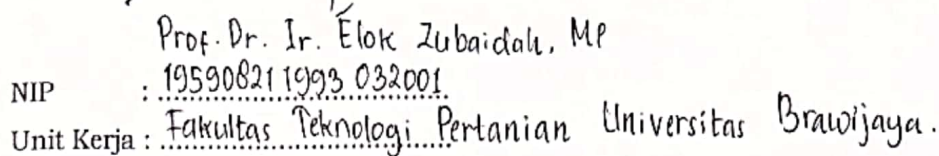 Prof. Dr. Ir. Elok Zubaidah, MP
NIP : 19590821 1993 032001
Unit Kerja : Fakultas Teknologi Pertanian Universitas Brawijaya.